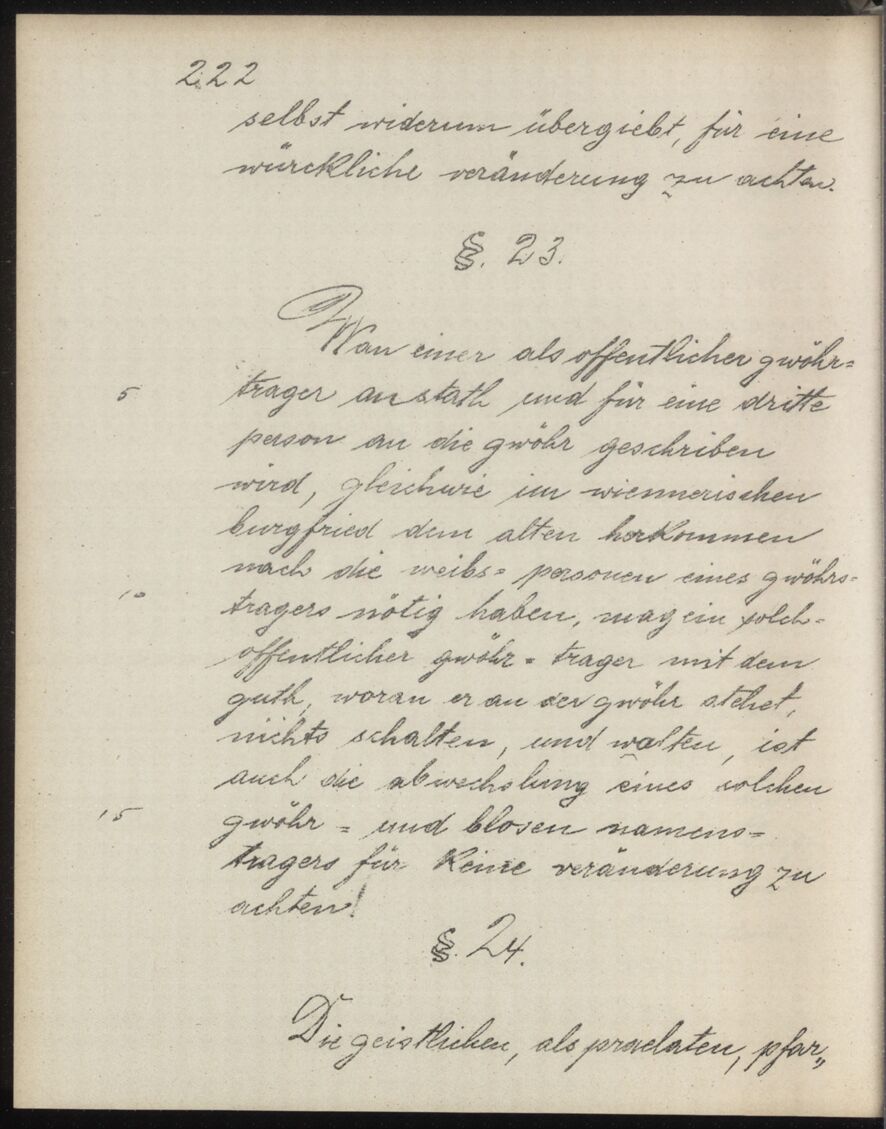 222
selbst widerum übergiebt, für eine
würckliche veränderung zu achten.
§. 23.
Wan einer als offentlicher gwöhr=
5 trager anstath und für eine dritte
person an die gwöhr geschriben
wird, gleichwie im wiennerischen
burgfried dem alten herkommen
nach die weibs= personen eines gwöhrs=
10 tragers nötig haben, mag ein solch=
offentlicher gwöhr= trager mit dem
guth, woran er an der gwöhr stehet,
nichts schalten, und walten, ist
auch die abwechslung eines solchen
15 gwöhr= und blosen namens=
tragers für keine veränderung zu
achten!
§. 24.
Die geistlichen, als praelaten, pfar„